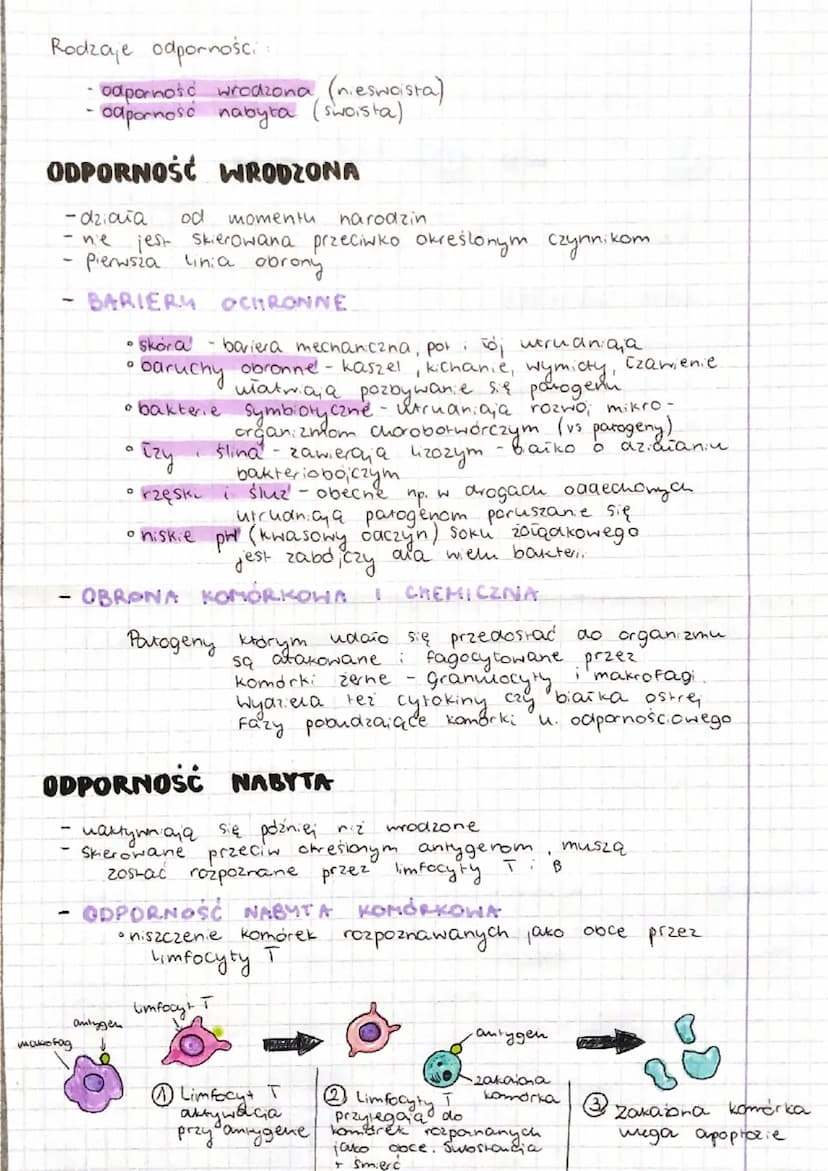 Rodzaje odporności:
- odporność wrodzona (nieswoista)
- odporność nabyta (swoista)
ODPORNOŚĆ WRODZONA
- działa od momentu narodzin
- nie jest skierowana przeciwko określonym czynnikom
- Pierwsza linia obrony
- BARIERY OCHRONNE
• skóra - bariera mechaniczna, pot i łój utrudniają
• odruchy obronne - kaszel, kichanie, wymioty, łzawienie
ułatwiają pozbywanie się patogenu
• bakterie symbiotyczne - utrudniają rozwój mikro-
organizmom chorobotwórczym (vs patogeny)
• łzy i ślina - zawierają lizozym - białko o działaniu
bakteriobójczym
• rzęski i śluz - obecne np. w drogach oddechowych
utrudniają patogenom poruszanie się
• niskie pH (kwasowy odczyn) soku żołądkowego
jest zabójczy dla wielu bakterii
- OBRONA KOMÓRKOWA I CHEMICZNA
Patogeny którym udało się przedostać do organizmu
są atakowane i fagocytowane przez
komórki żerne - granulocyty i makrofagi.
Wydziela też cytokiny czy białka ostrej
fazy pobudzające komórki u. odpornościowego
ODPORNOŚĆ NABYTA
- uaktywniają się później niż wrodzone
- skierowane przeciw określonym antygenom, muszą
zostać rozpoznane przez limfocyty T i B
- ODPORNOŚĆ NABYTA KOMÓRKOWA
• niszczenie komórek rozpoznawanych jako obce przez
limfocyty T
limfocyt T
antygen
makrofag
antygen
zakażona
komórka
① Limfocyt T
aktywacja
przy antygenie
② Limfocyty T
przylegają do
komórek rozpoznanych
jako obce. Substancja
+ śmierć
③ zakażona komórka
ulega apoptozie